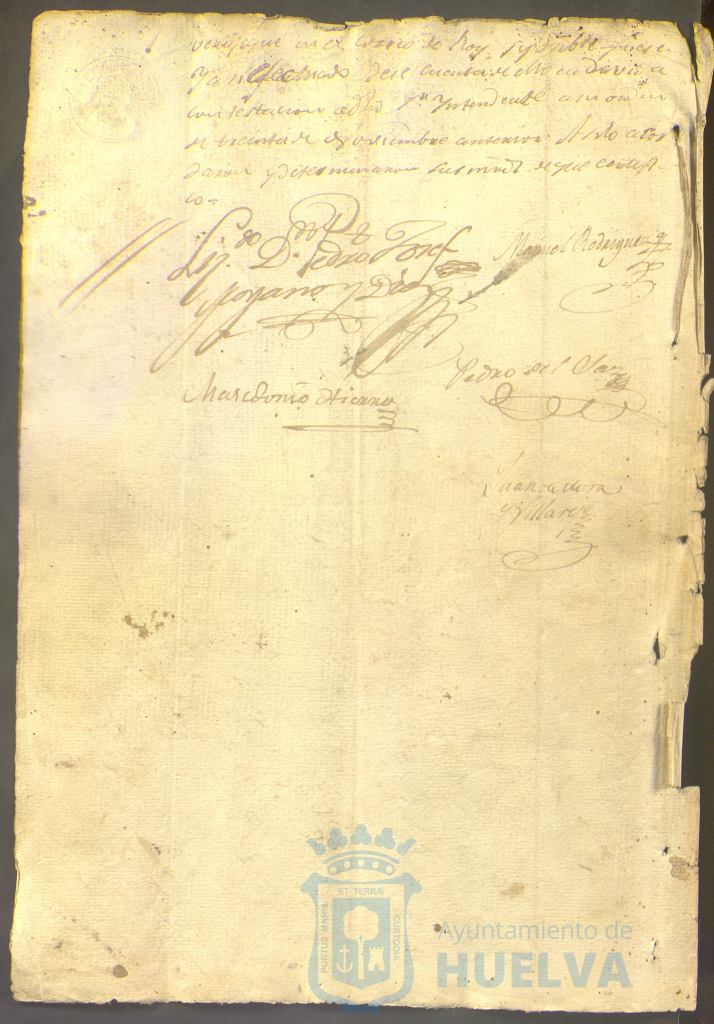 verifique en el correo de Hoy si posible fuese
y a n efectuado dese cuenta de ello en devida
contestacion a dho Sr Yntendente a su orden
de treinta de Noviembre anterior. Asi lo acor
daron y determinaron sus mrds de que certifi-
co=
Lizdo Dn Pedro Josef
Moyano y Diaz
Manuel Rodriguez
Pedro del
Masedonio
Juan de Mora
y Villar
PORTUS MARIS ET TERRÆ CUSTODIA
Ayuntamiento de
HUELVA